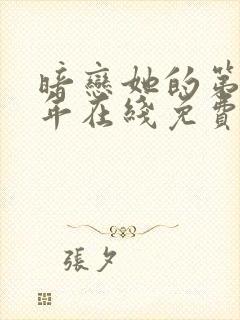 暗戀她的第
年在綫免費
張夕